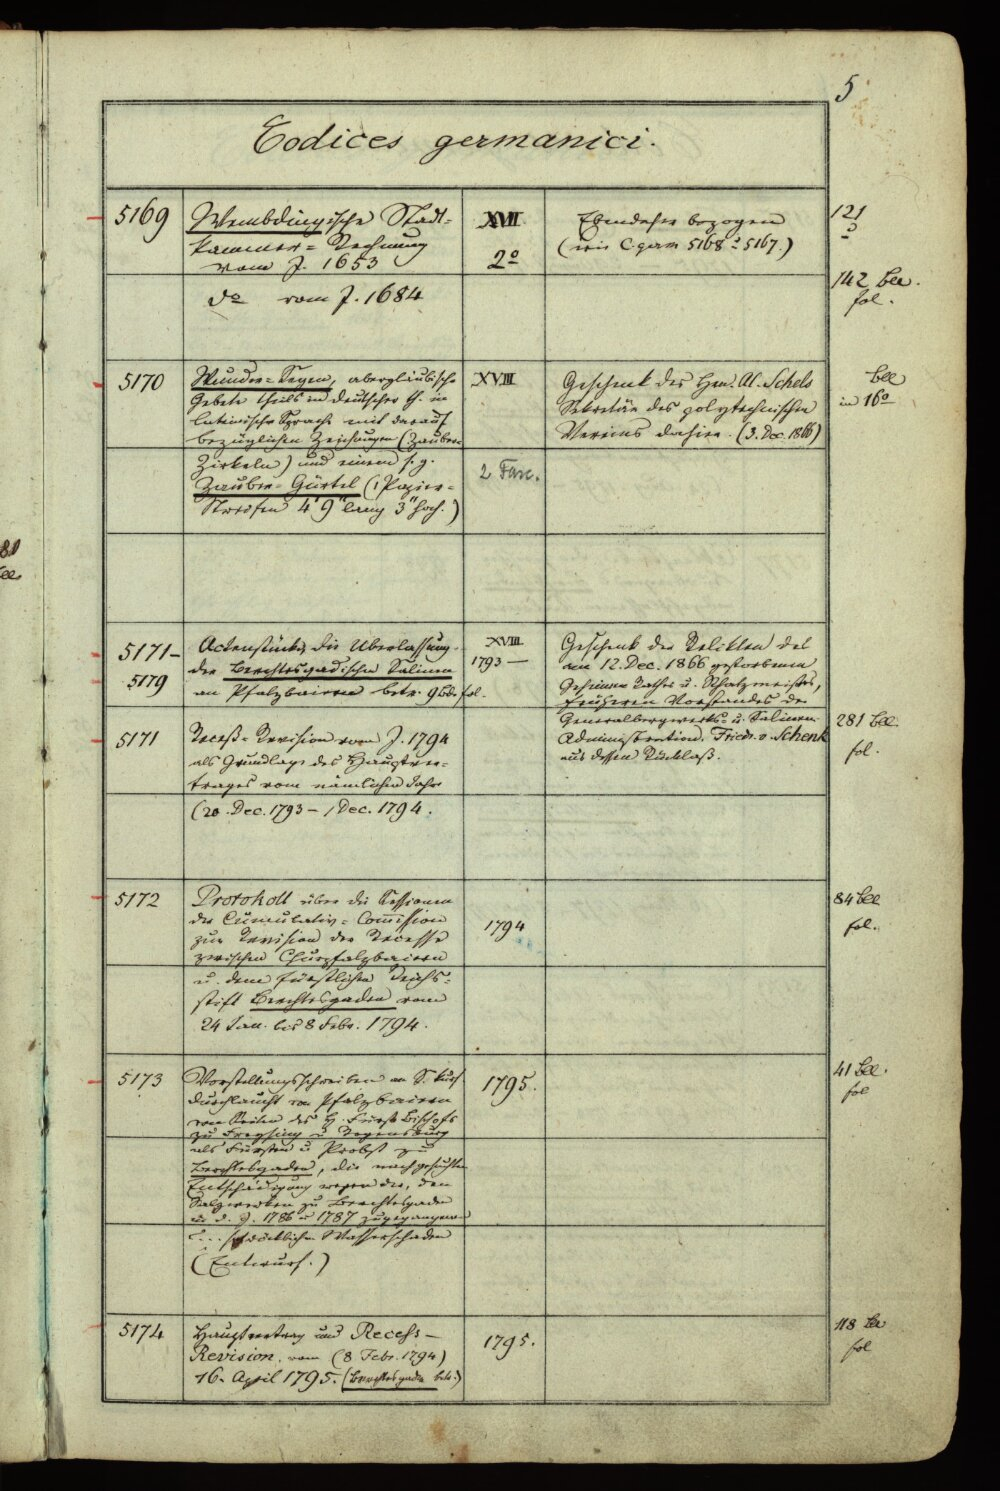 5
Codices germanici.
5169
Wembdingische Stadt=
kammer=Rechnung
vom J. 1653
XVII
2º
Ebendaher bezogen
(wie C. germ 5168 u 5167.)
121
dº vom J. 1684
142 Bll.
fol.
5170
Wunder=Segen, abergläubische
Gebete theils in deutscher th. in
lateinischer Sprache mit darauf
bezüglichen Zeichnungen (Zauber=
Zirkeln) und einem s. g.
Zauber=Gürtel (1 Papier=
Streifen 4' 9" lang 3" hoch.)
XVIII
2 Fasc.
Geschenk des Hrn. Al. Schels
Sekretär des polytechnischen
Vereins dahier. (3. Dec. 1866)
Bll
in 16º
81
Bll
5171–
5179
Actenstücke, die Überlassung
der Berchtesgadischen Salinen
an Pfalzbaiern betr. 9 Bde fol.
XVIII
1793 —
Geschenk der Relikten des
am 12. Dec. 1866 gestorbenen
Geheimen Rathes u. Schatzmeisters,
früheren Vorstandes der
Generalbergwerks- u. Salinen-
Administration Friedr. v. Schenk
aus dessen Rücklaß.
5171
Receß=Revision vom J. 1794
als Grundlage des Hauptver=
trages vom nämlichen Jahre
(20. Dec. 1793 – 1 Dec. 1794.
281 Bll.
fol.
5172
Protokoll über die Sessionen
der Cumulativ=Commission
zur Revision der Recesse
zwischen Churpfalzbaiern
u. dem fürstlichen Reichs=
stift Berchtesgaden vom
24 Jan. bis 8 Febr. 1794.
1794
84 Bll
fol.
5173
Vorstellungsschreiben an S. Kurf.
Durchlaucht von Pfalzbaiern
von Seiten des H. Fürst Bischofs
zu Freysing u Regensburg
als Fürsten u Probst zu
Berchtesgaden, die nachgesuchte
Entschädigung wegen der, den
Salzwerken zu Berchtesgaden
in d. J. 1786 u 1787 zugegangenen
Wasserschaden
(Entwurf.)
1795.
41 Bll.
fol
5174
Hauptvertrag und Recess–
Revision, vom (8. Febr. 1794)
16. April 1795. (Berchtesgaden betr.)
1795.
118 Bll
fol